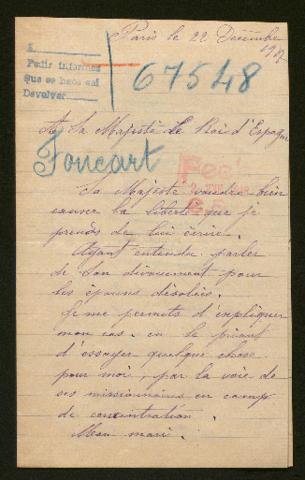 Paris le 22 Décembre
1917
Pedir informes
que se hace así
Devolver
67548
A Sa Majesté le Roi d'Espagne
Foucart
Sa Majesté voudra bien
excuser la liberté que je
prends de lui écrire.
Ayant entendu parler
de Son dévouement pour
les épouses désolées.
Je me permets d'expliquer
mon cas. en le priant
d'essayer quelque chose
pour moi, par la voie de
ses missionnaires en camp
de concentration.
Mon mari.